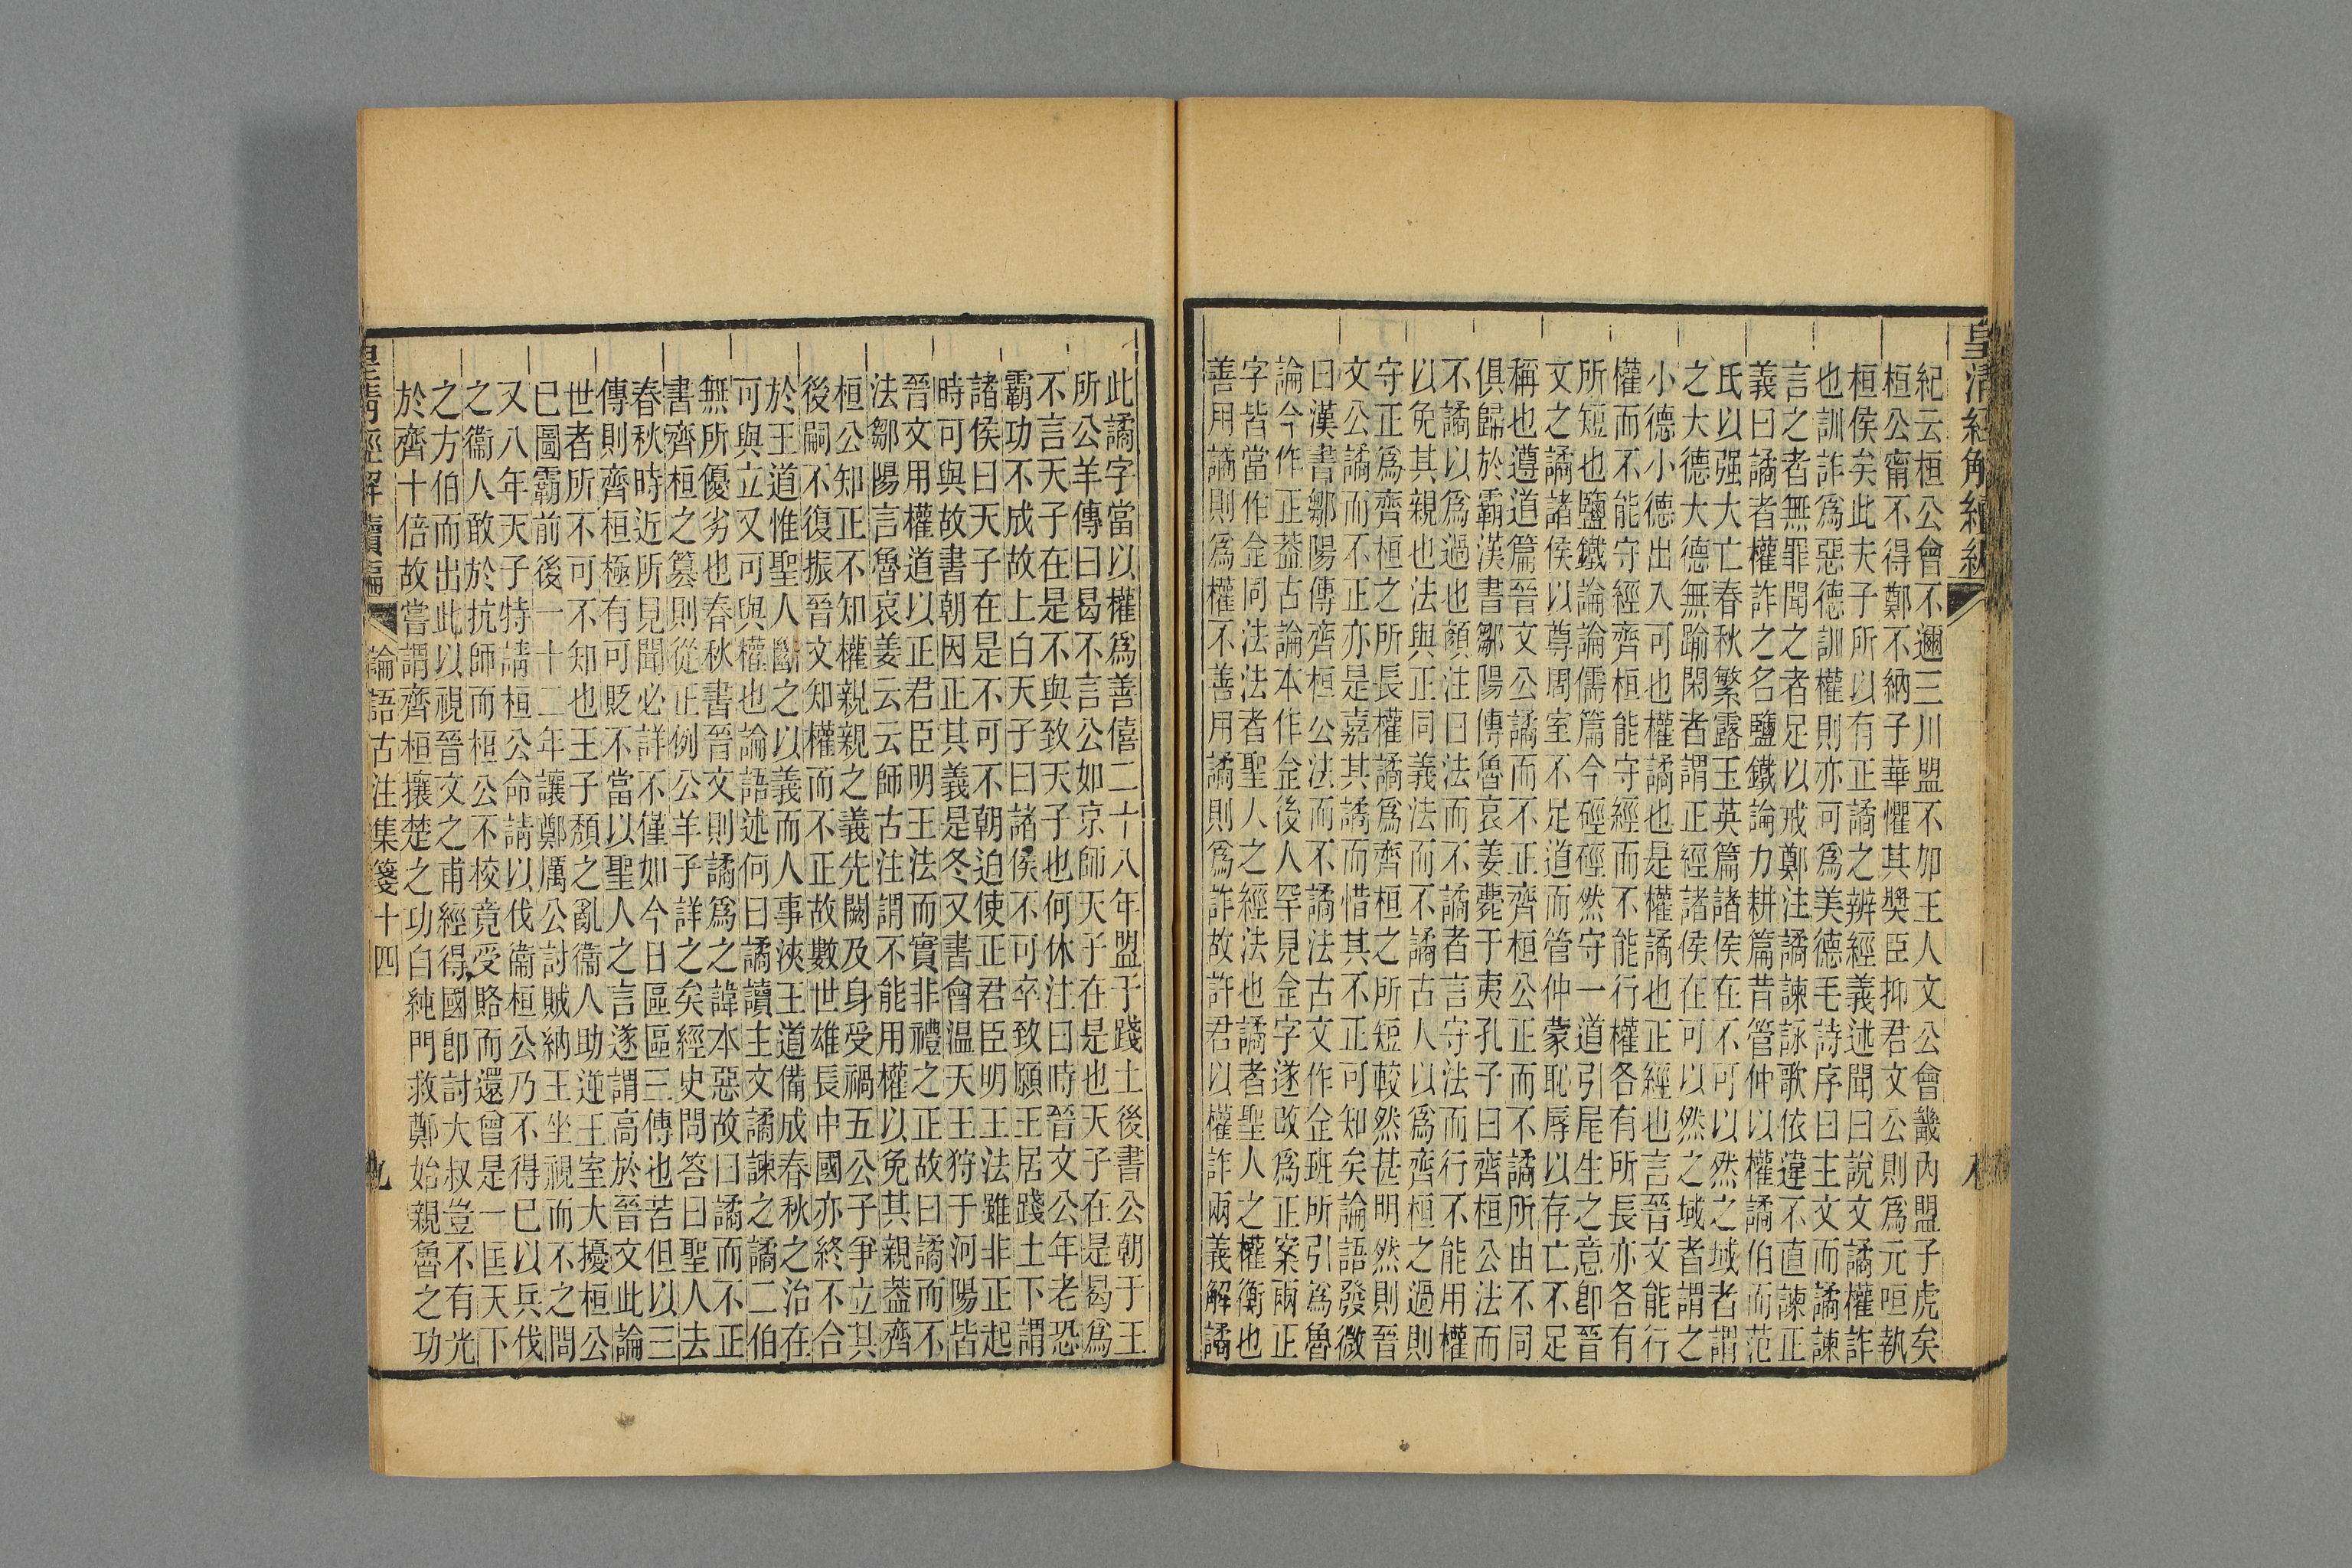 皇清經解續編
紀云桓公會不邇三川盟不加王人文公會畿內盟子虎矣
桓公甯不得鄭不納子華懼其奬臣抑君文公則爲元咺執
桓侯矣此夫子所以有正譎之辨經義述聞曰說文譎權詐
也訓詐爲惡德訓權則亦可爲美德毛詩序曰主文而譎諫
言之者無罪聞之者足以戒鄭注譎諫詠歌依違不直諫正
義曰譎者權詐之名鹽鐵論力耕篇昔管仲以權譎伯而范
氏以强大亡春秋繁露玉英篇諸侯在不可以然之域者謂
之大德大德無踰閑者謂正經諸侯在可以然之域者謂之
小德小德出入可也權譎也是權譎也正經也言晉文能行
權而不能守經齊桓能守經而不能行權各有所長亦各有
所短也鹽鐵論論儒篇今硜硜然守一道引尾生之意卽晉
文之譎諸侯以尊周室不足道而管仲蒙恥辱以存亡不足
稱也遵道篇晉文公譎而不正齊桓公正而不譎所由不同
俱歸於霸漢書鄒陽傳魯哀姜薨于夷孔子曰齊桓公法而
不譎以爲過也顏注曰法而不譎者言守法而行不能用權
以免其親也法與正同義法而不譎古人以爲齊桓之過則
守正爲齊桓之所長權譎爲齊桓之所短較然甚明然則晉
文公譎而不正亦是嘉其譎而惜其不正可知矣論語發微
曰漢書鄒陽傳齊桓公法而不譎法古文作佱班所引爲魯
論今作正葢古論本作佱後人罕見佱字遂改爲正案兩正
字皆當作佱同法法者聖人之經法也譎者聖人之權衡也
善用譎則爲權不善用譎則爲詐故許君以權詐兩義解譎
此譎字當以權爲善僖二十八年盟于踐土後書公朝于王
所公羊傳曰曷不言公如京師天子在是也天子在是曷爲
不言天子在是不與致天子也何休注曰時晉文公年老恐
霸功不成故上白天子曰諸侯不可卒致願王居踐土下謂
諸侯曰天子在是不可不朝迫使正君臣明王法雖非正起
時可與故書朝因正其義是冬又書會溫天王狩于河陽皆
晉文用權道以正君臣明王法而實非禮之正故曰譎而不
法鄒陽言魯哀姜云云師古注謂不能用權以免其親葢齊
桓公知正不知權親親之義先闕及身受禍五公子爭立其
後嗣不復振晉文知權而不正故數世雄長中國亦終不合
於王道惟聖人斷之以義而人事浹王道備成春秋之治在
可與立又可與權也論語述何曰譎讀主文譎諫之譎二伯
無所優劣也春秋書晉文則譎爲之諱本惡故曰譎而不正
書齊桓之簒則從正例公羊子詳之矣經史問答曰聖人去
春秋時近所見聞必詳不僅如今日區區三傳也苦但以三
傳則齊桓極有可貶不當以聖人之言遂謂高於晉文此論
世者所不可不知也王子頽之亂衞人助逆王室大擾桓公
已圖霸前後一十二年讓鄭厲公討賊納王坐視而不之問
又八年天子特請桓公命請以伐衞桓公乃不得已以兵伐
之衞人敢於抗師而桓公不校竟受賂而還曾是一匡天下
之方伯而出此以視晉文之甫經得國卽討大叔豈不有光
於齊十倍故嘗謂齊桓攘楚之功自純門救鄭始親魯之功
皇清經解續編 論語古注集箋十四 九